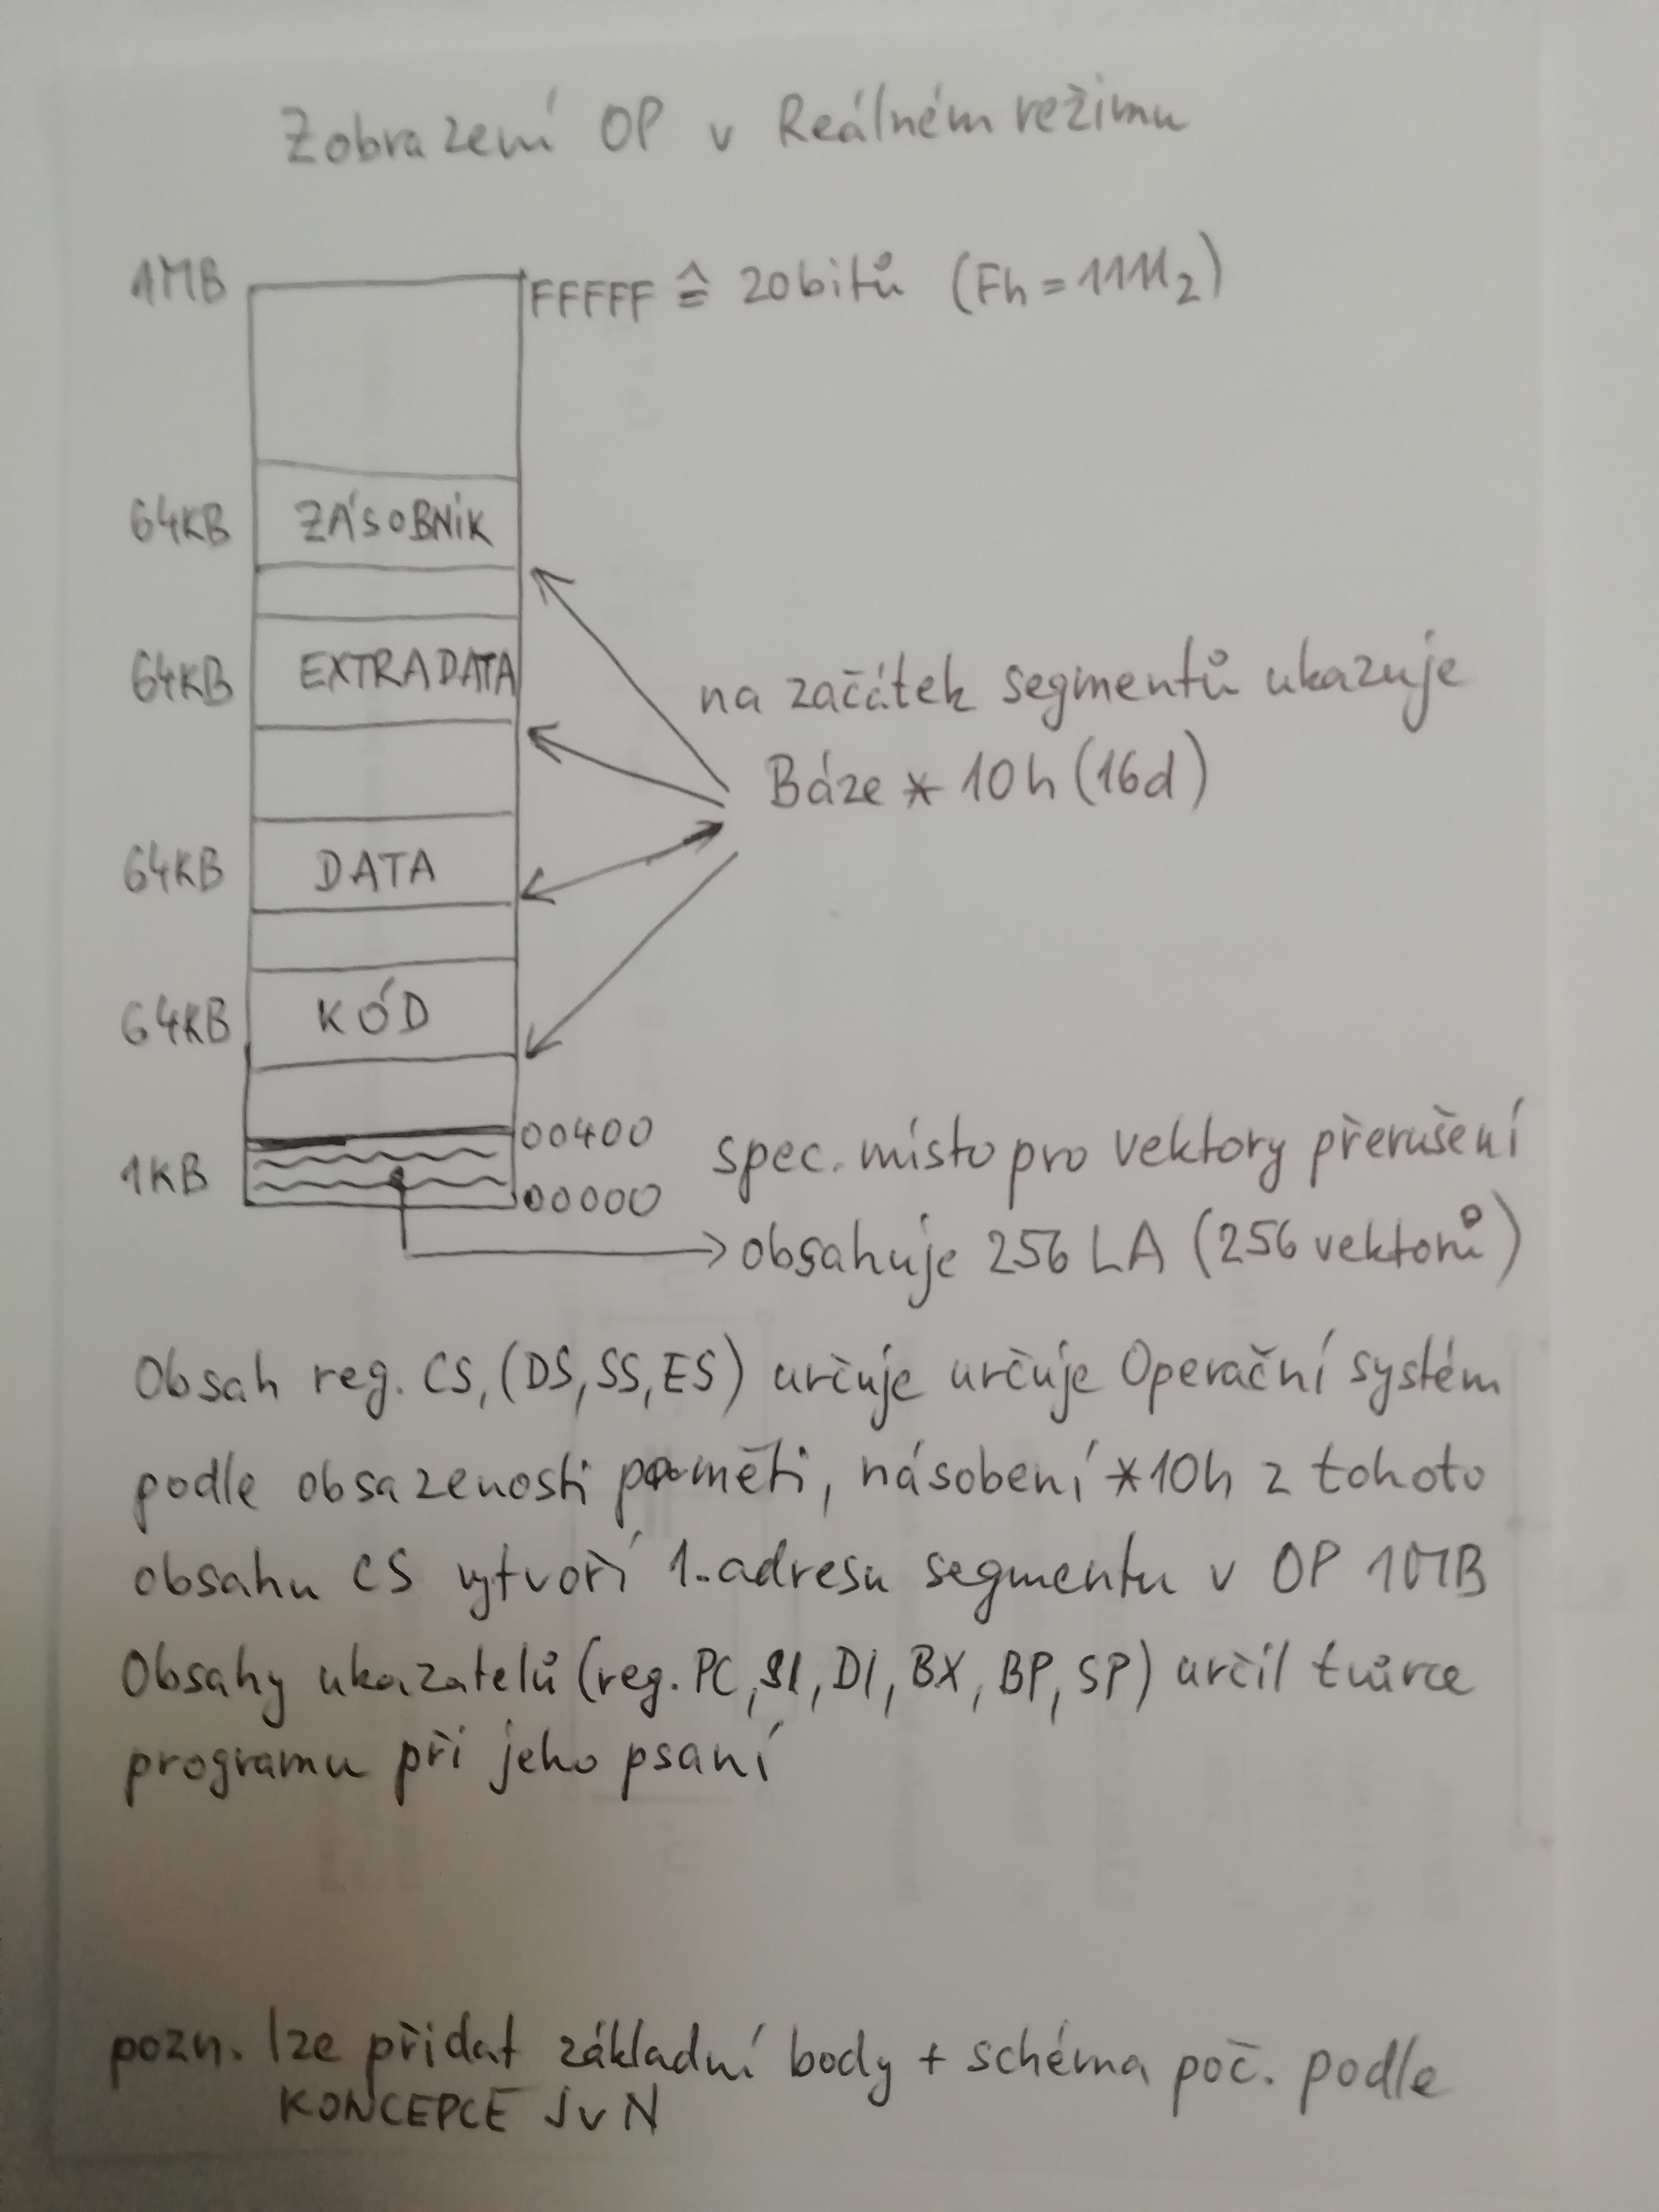 Zobrazení OP v Reálném režimu
1MB
FFFFF ≙ 20bitů (Fh = 1111₂)
64KB ZÁSOBNÍK
64KB EXTRADATA
na začátek segmentů ukazuje
Báze * 10h (16d)
64KB DATA
64KB KÓD
00400
1KB
00000
spec. místo pro vektory přerušení
obsahuje 256 LA (256 vektorů)
Obsah reg. CS, (DS, SS, ES) určuje určuje Operační systém
podle obsazenosti paměti, násobení *10h z tohoto
obsahu CS vytvoří 1. adresu segmentu v OP 1MB
Obsahy ukazatelů (reg. PC, SI, DI, BX, BP, SP) určil tvůrce
programu při jeho psaní
pozn. lze přidat základní body + schéma poč. podle
KONCEPCE JvN